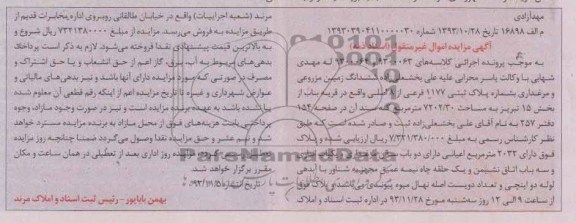 مهدآزادی
م الف ۱۶۸۹۸ تاریخ ۱۳۹۳/۱۰/۲۸ شماره ۱۳۹۳۰۳۹۰۴۱۱۰۰۰۰۳۰
آگهی مزایده اموال غیرمنقول
به موجب پرونده اجرائی کلاسه‌های له مهدی
شهابی با وکالت یاسر محرابی علیه علی ششدانگ زمین مزروعی
و مرغداری بشماره پلاک ثبتی ۱۱۷۷ فرعی از اصلی واقع در قریه یساب از
بخش ۱۵ تبریز به مساحت ۷۲۰۲/۳۰ مترمربع که سند آن در صفحه ۱۵۴
دفتر ۲۵۷ به نام آقای علی بخشعلی‌زاده ثبت و صادر شده است که طبق
نظر کارشناس رسمی به مبلغ ۷/۳۲۱/۳۸۰/۰۰۰ ریال ارزیابی شده و پلاک
فوق دارای ۲۰۳۲ مترمربع اعیانی دارای دو باب
و سه باب اتاق نشیمن و یک حلقه چاه نیمه عمیق مجهز به شناور با آبدهی
لوله دو اینچی و تعداد دویست اصله نهال میوه پیوندی می‌باشد پلاک فوق
از ساعت ۹ الی ۱۲ روز سه‌شنبه مورخ ۹۳/۱۱/۲۸ در اداره ثبت اسناد و املاک
مرند (شعبه اجراییات) واقع در خیابان طالقانی روبروی اداره مخابرات قدیم از
طریق مزایده به فروش می‌رسد. مزایده از مبلغ ۷۳۲۱۳۸۰۰۰۰ ریال شروع و
به بالاترین قیمت پیشنهادی نقدا فروخته می‌شود. لازم به ذکر است پرداخت
بدهی‌های مربوط به آب، برق، گاز اعم از حق انشعاب و یا حق اشتراک و
مصرف در صورتی که مورد مزایده دارای آنها باشد و نیز بدهی‌های مالیاتی و
عوارض شهرداری و غیره تا تاریخ مزایده اعم از اینکه رقم قطعی آن معلوم شده
یا نشده باشد به عهده برنده مزایده است و نیز در صورت وجود مازاد، وجوه
پرداختی بابت هزینه‌های فوق از محل مازاد به برنده مزایده مسترد خواهد
شد و نیم عشر و حق مزایده نقدا وصول می‌گردد ضمنا چنانچه روز مزایده
روز اداری بعد از تعطیلی در همان ساعت و مکان
مقرر برگزار خواهد شد.
تاریخ انتشار: ۹۳/۱۱/۵
بهمن باباپور - رئیس ثبت اسناد و املاک مرند
ParsNamadData